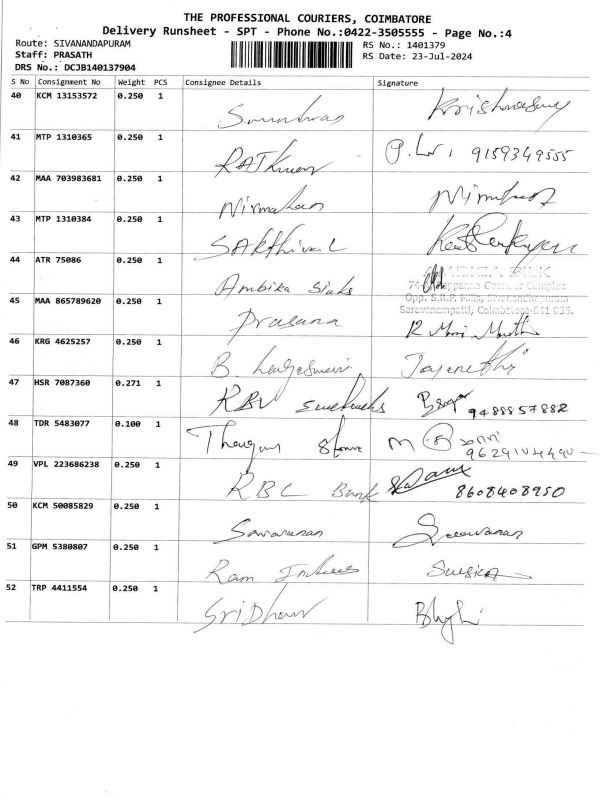 THE PROFESSIONAL COURIERS, COIMBATORE
Delivery Runsheet - SPT - Phone No.:0422-3505555 - Page No.:4
Route: SIVANANDAPURAM RS No.: 1401379
Staff: PRASATH RS Date: 23-Jul-2024
DRS No.: DCJB140137904
S No Consignment No Weight PCS Consignee Details Signature
40 KCM 13153572 0.250 1
41 MTP 1310365 0.250 1 9159349555
42 MAA 703983681 0.250 1 Nirmalan
43 MTP 1310384 0.250 1 SAKthivel
44 ATR 75086 0.250 1 Ambika
Counter Complex
Opp. S.R.P. Mills,
Saravanampatti, Coimbatore-641 035.
45 MAA 865789620 0.250 1 Prasana
46 KRG 4625257 0.250 1 B.
47 HSR 7087360 0.271 1 RBV 9488857882
48 TDR 5483077 0.100 1
49 VPL 223686238 0.250 1 RBL Bank 8608408950
50 KCM 50085829 0.250 1 Saravanan
51 GPM 5380807 0.250 1 Ram
52 TRP 4411554 0.250 1 SriDhar